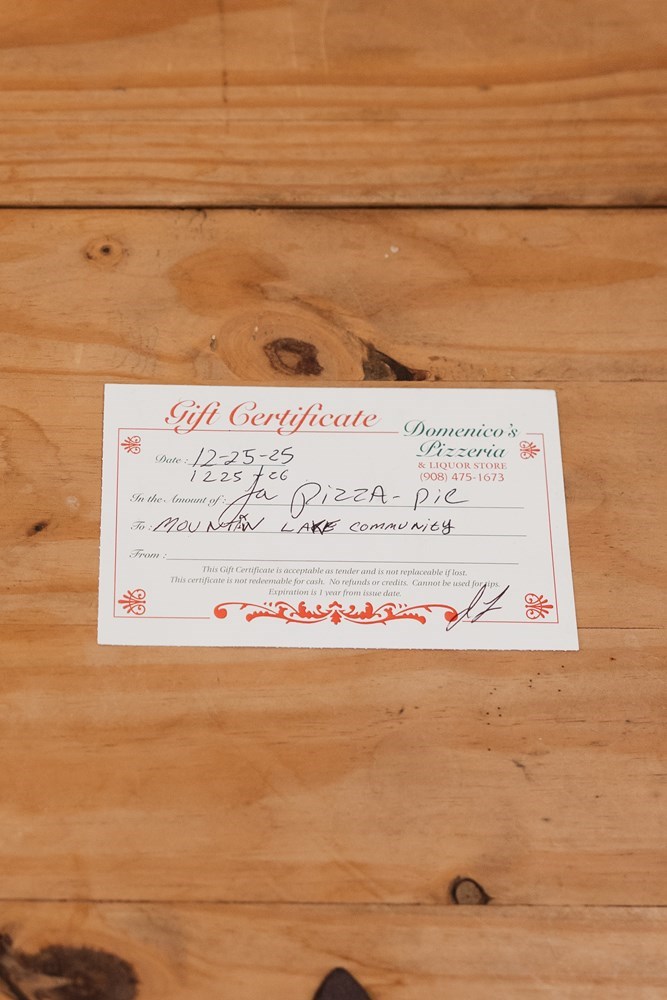 Gift Certificate
Domenico's
Pizzeria
& LIQUOR STORE
(908) 475-1673
Date: 12-25-25
12 25 26
In the Amount of: PIZZA- PIE
To: MOUNTAIN LAKE COMMUNITY
From:
This Gift Certificate is acceptable as tender and is not replaceable if lost.
This certificate is not redeemable for cash. No refunds or credits. Cannot be used for tips.
Expiration is 1 year from issue date.